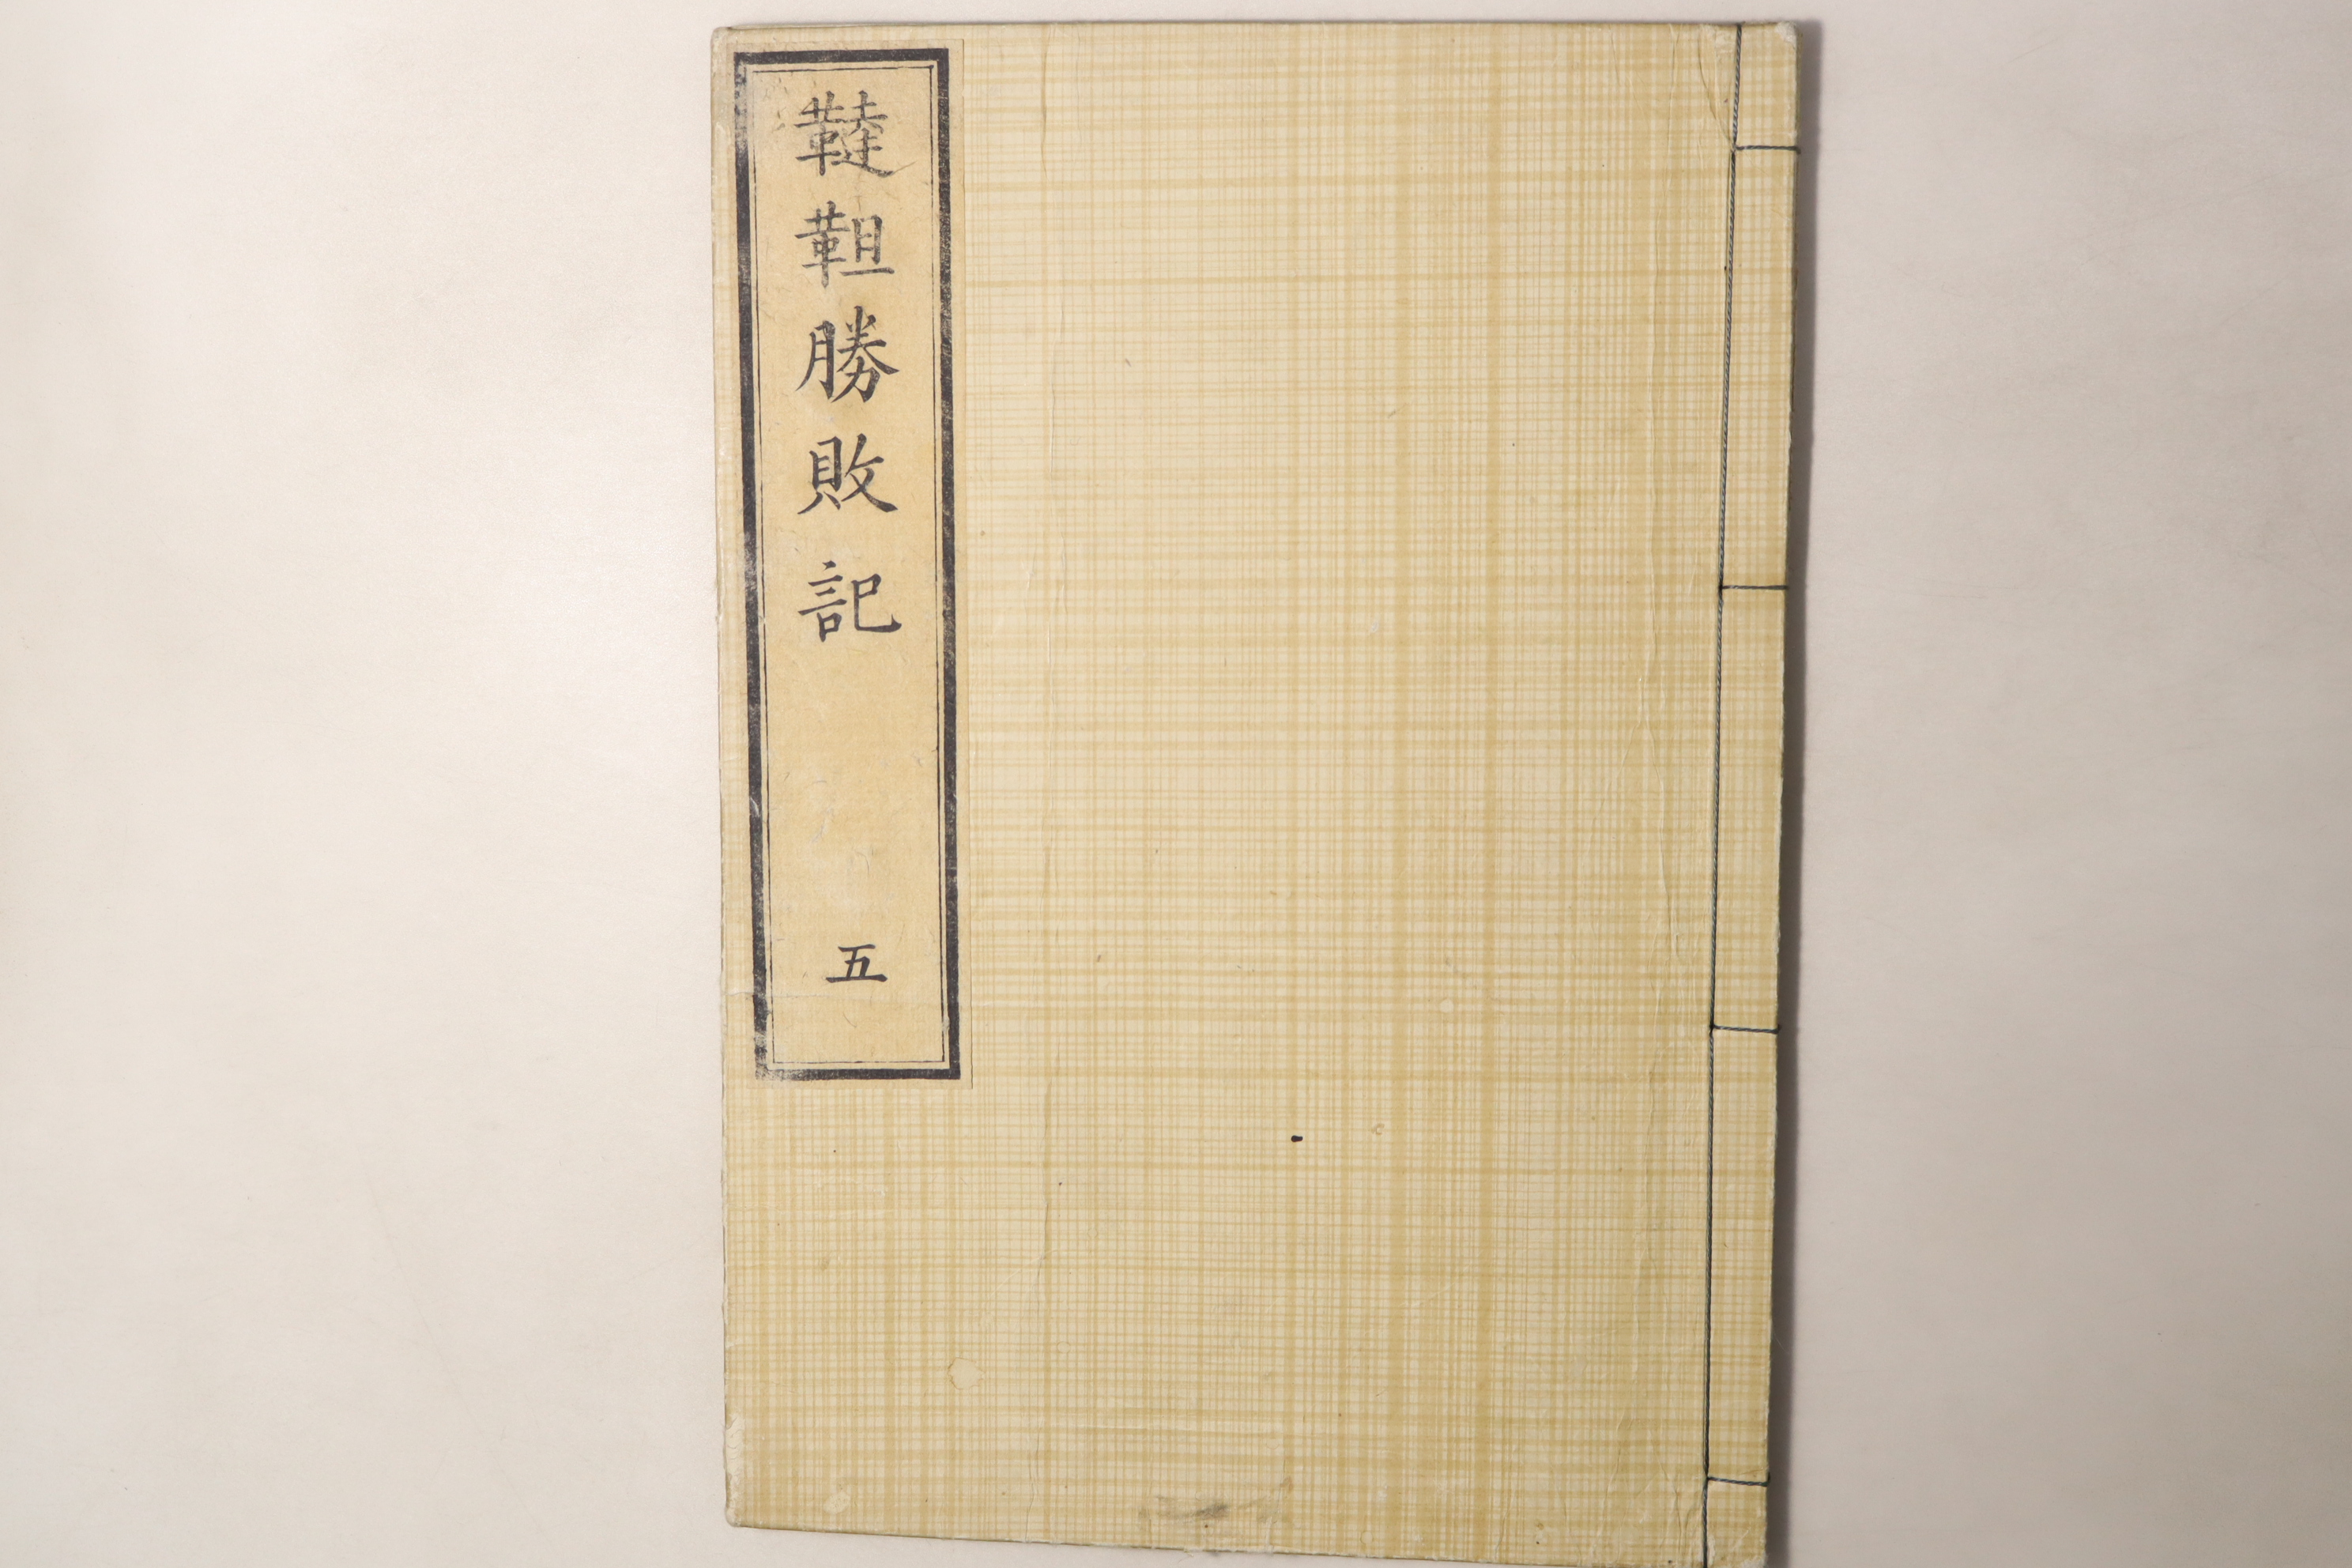 韃靼勝敗記
五